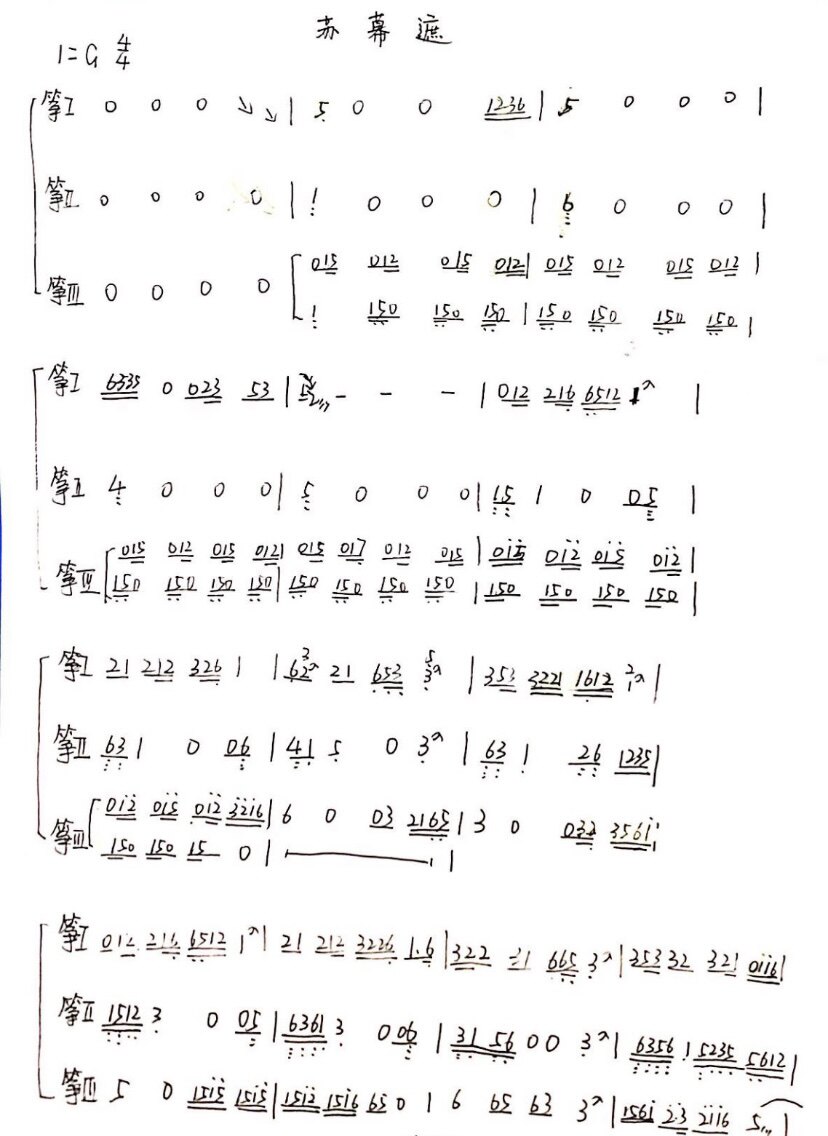 苏幕遮
1=G 4/4
筝I 0 0 0 ↘ ↘ | 5 0 0 1236 | 5 0 0 0 |
筝II 0 0 0 0 | 1 0 0 0 | 6 0 0 0 |
015 012 015 012 | 015 012 015 012 |
筝III 0 0 0 0
1 150 150 150 | 150 150 150 150 |
筝I 6535 0 023 53 | - - - | 012 216 6512 1 |
筝II 4 0 0 0 | 5 0 0 0 | 15 1 0 05 |
015 012 015 012 | 015 017 012 015 | 015 012 015 012 |
筝III 150 150 150 150 | 150 150 150 150 | 150 150 150 150 |
筝I 21 212 326 1 | 62 21 653 3 | 353 3221 1612 1 |
筝II 63 1 0 06 | 41 5 0 3 | 63 1 26 1235 |
012 015 012 3216 | 6 0 03 2165 | 3 0 032 3561
筝III 150 150 15 0 | |
筝I 012 216 6512 1 | 21 212 3226 1.6 | 322 21 665 3 | 353 32 321 0116 |
筝II 1512 3 0 05 | 6361 3 0 06 | 31 56 0 0 3 | 6356 1 5235 5612 |
筝III 5 0 1515 1515 | 1512 1516 65 0 | 6 65 63 3 | 1561 23 2116 5 |